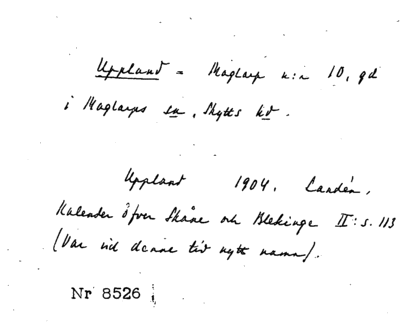 Uppland = Maglarp n:r 10, gd
i Maglarps sn, Skytts hd.
Uppland 1904. Landén,
Kalender öfver Skåne och Blekinge II: s. 113
(Var vid denna tid nytt namn).
Nr 8526